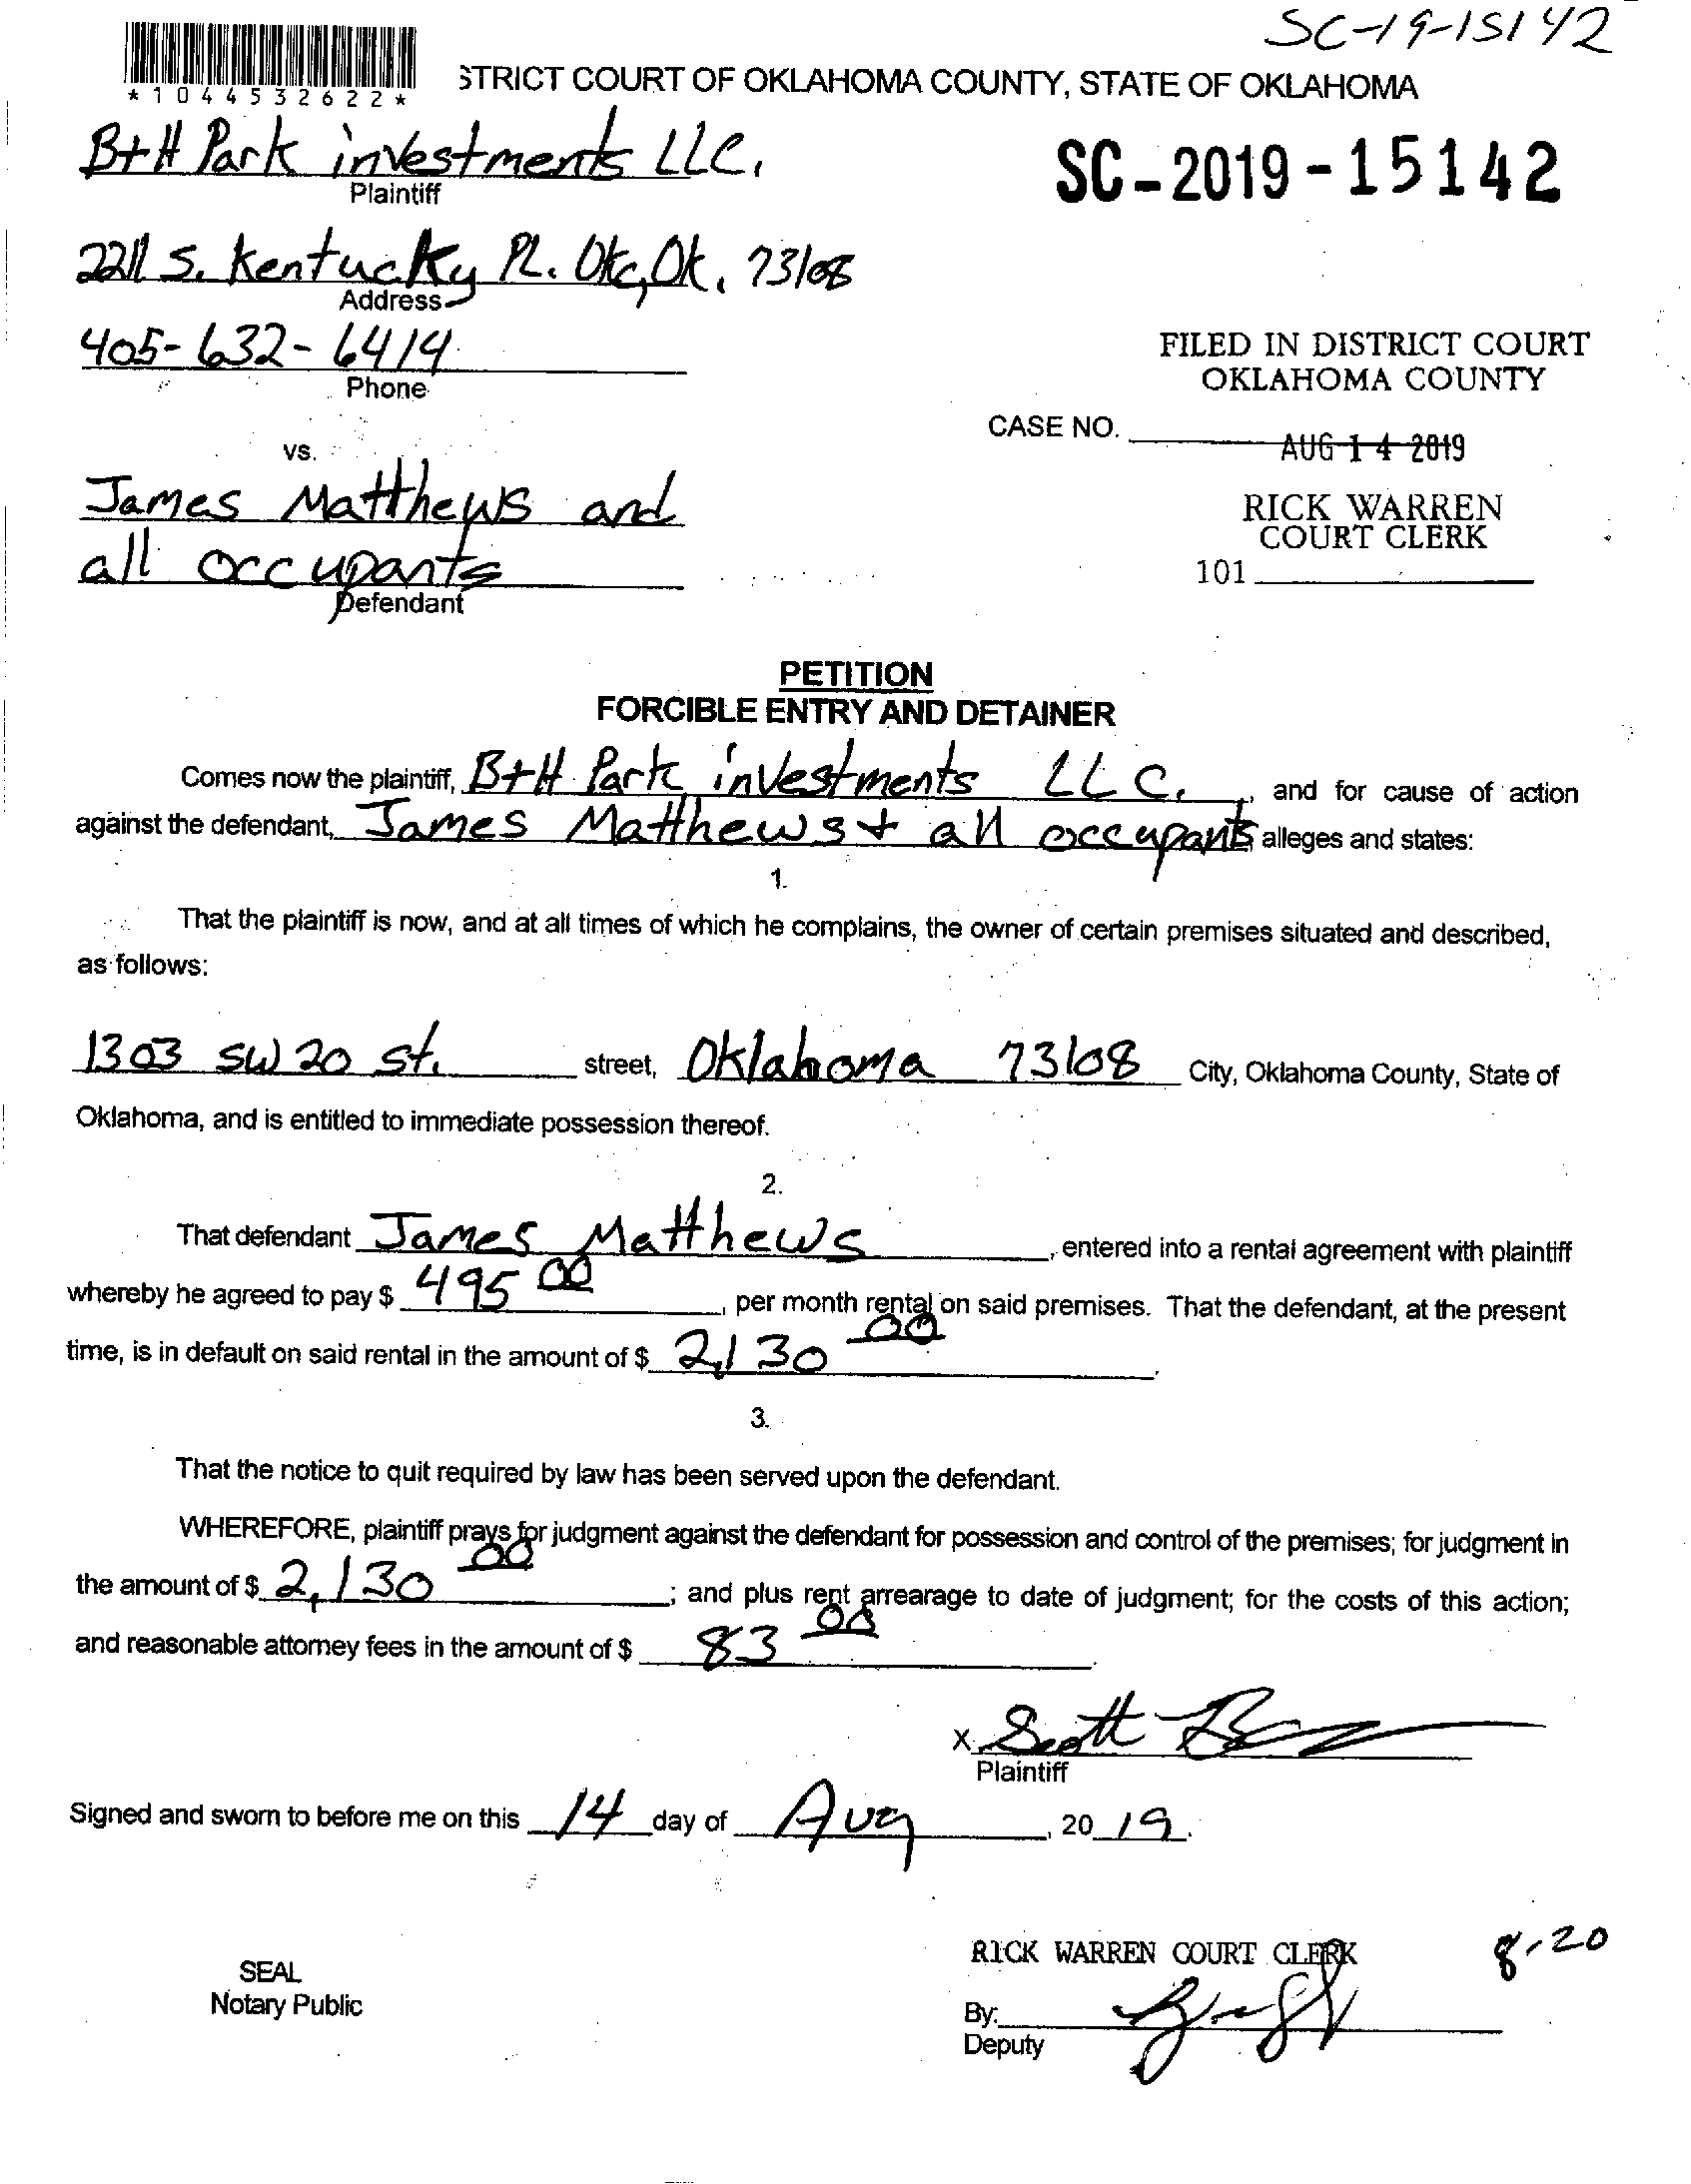 SC-19-15142
*1044532622*
STRICT COURT OF OKLAHOMA COUNTY, STATE OF OKLAHOMA
B+H Park investments LLC.
Plaintiff
SC-2019-15142
2211 S. Kentucky Pl. Okc, Ok. 73108
Address
405-632-6414
Phone
FILED IN DISTRICT COURT
OKLAHOMA COUNTY
CASE NO.
AUG 14 2019
vs.
James Matthews and
RICK WARREN
COURT CLERK
all occupants
101
Defendant
PETITION
FORCIBLE ENTRY AND DETAINER
Comes now the plaintiff, B+H Park investments LLC., and for cause of action
against the defendant, James Matthews + all occupants alleges and states:
1.
That the plaintiff is now, and at all times of which he complains, the owner of certain premises situated and described,
as follows:
1303 SW 20 St. street, Oklahoma 73108 City, Oklahoma County, State of
Oklahoma, and is entitled to immediate possession thereof.
2.
That defendant James Matthews, entered into a rental agreement with plaintiff
whereby he agreed to pay $ 495 00, per month rental on said premises. That the defendant, at the present
time, is in default on said rental in the amount of $ 2,130 00.
3.
That the notice to quit required by law has been served upon the defendant.
WHEREFORE, plaintiff prays for judgment against the defendant for possession and control of the premises; for judgment in
the amount of $ 2,130 00; and plus rent arrearage to date of judgment; for the costs of this action;
and reasonable attorney fees in the amount of $ 83 00.
x Scott
Plaintiff
Signed and sworn to before me on this 14 day of Aug, 20 19.
RICK WARREN COURT CLERK
8-20
SEAL
Notary Public
By:
Deputy